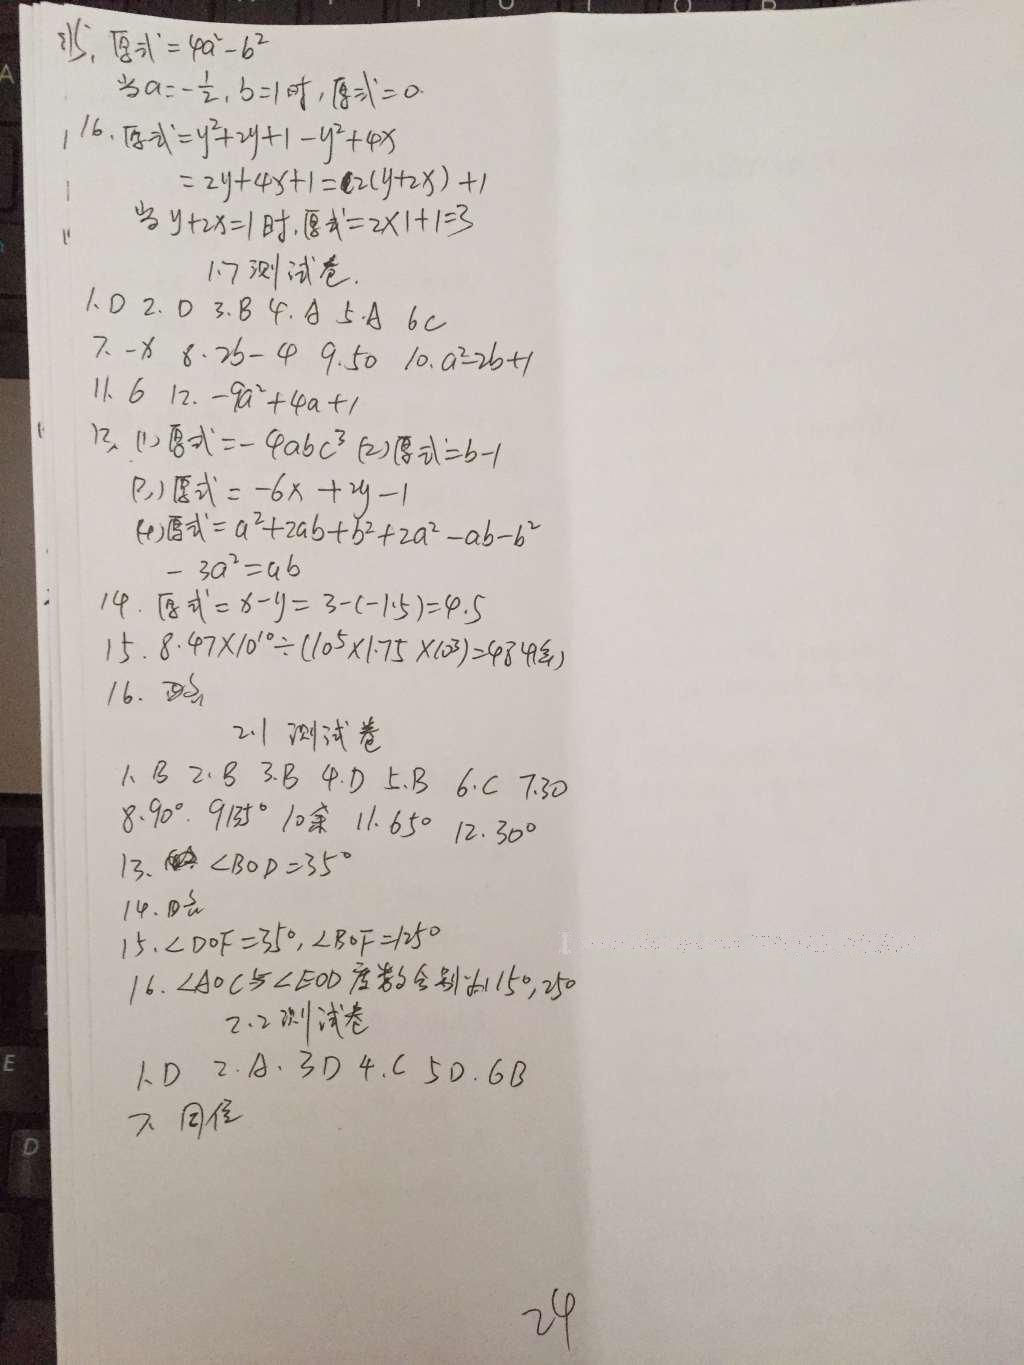 15. 原式=4a²-b²
当a=-½, b=1时, 原式=0.
16. 原式=y²+2y+1-y²+4x
=2y+4x+1=2(y+2x)+1
当y+2x=1时, 原式=2×1+1=3
1.7 测试卷.
1. D 2. D 3. B 4. A 5. A 6 C
7. -x 8. 2b-4 9. 50 10. a²-2b+1
11. 6 12. -9a²+4a+1
13. (1)原式=-4abc³ (2)原式=b-1
(3)原式=-6x+2y-1
(4)原式=a²+2ab+b²+2a²-ab-b²
-3a²=ab
14. 原式=x-y=3-(-1.5)=4.5
15. 8.47×10¹⁰÷(10⁵×1.75×10³)=484(年)
16. 略
2.1 测试卷
1. B 2. B 3. B 4. D 5. B 6. C 7. 30
8. 90°. 9 135° 10 余 11. 65° 12. 30°
13. ∠BOD=35°
14. 略
15. ∠DOF=35°, ∠BOF=125°
16. ∠AOC与∠EOD度数分别为115°, 25°
2.2 测试卷
1. D 2. A. 3 D 4. C 5 D. 6 B
7. 同位
24
A
E
D